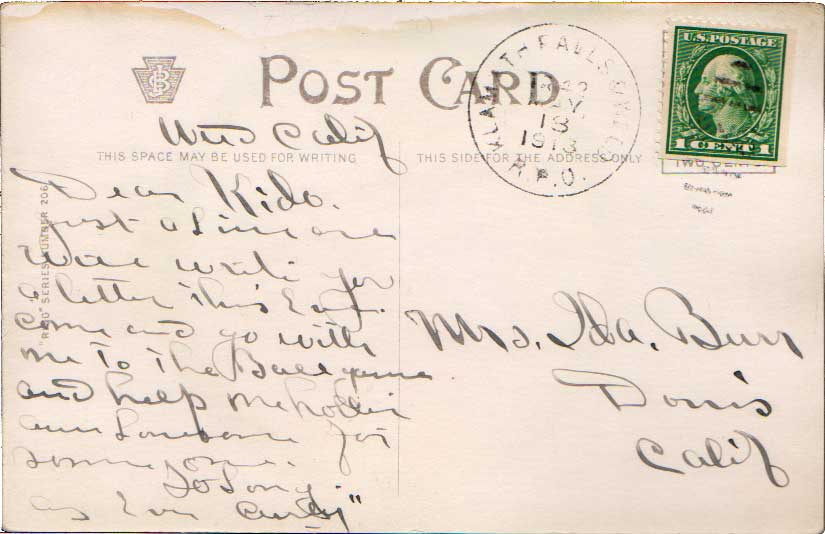 POST CARD
KLAMATH FALLS & WEED
MAY
18
1913
R.P.O.
U.S. POSTAGE
1 CENT 1
Weed Calif
THIS SPACE MAY BE USED FOR WRITING
THIS SIDE FOR THE ADDRESS ONLY
"REIO" SERIES NUMBER 206
Dear Kido.
just a Line and
will write you
a letter this Eve.
Come and go with
me To The Ball game
and help me holler
am Lonesome for
some one.
So Long.
as Ever Curly"
Mrs. Ida. Burr
Dorris
Calif